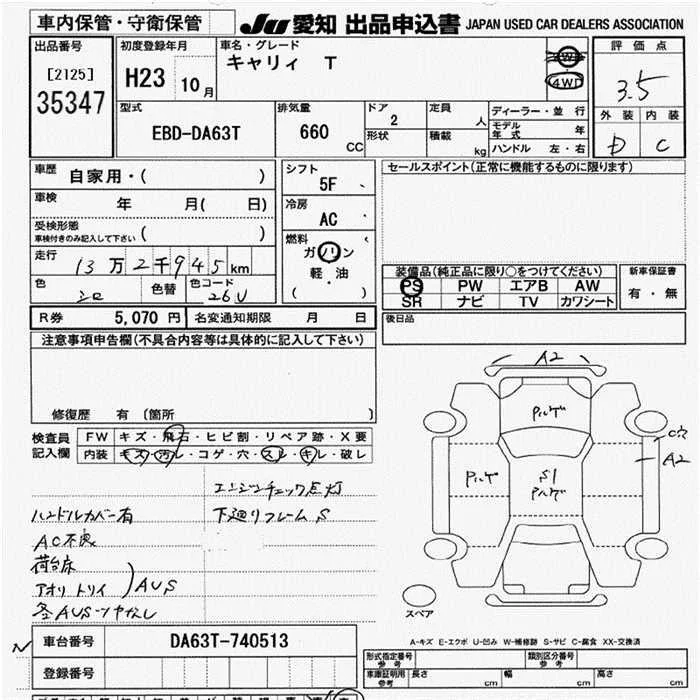 車内保管・守衛保管
JU 愛知 出品申込書 JAPAN USED CAR DEALERS ASSOCIATION
出品番号
[2125]
35347
初度登録年月
H23 10月
車名・グレード
キャリィ T
2WD
4WD
評価点
3.5
外装 内装
D C
型式
EBD-DA63T
排気量
660 CC
ドア
2
形状
定員 人
積載 kg
ディーラー・並行
モデル年式 年
ハンドル 左・右
車歴 自家用・( )
車検 年 月( 日)
受検形態
車検付きのみ記入して下さい ( )
走行 13万2千945km
色 シロ 色替 色コード 26U
シフト
5F
冷房
AC
燃料
ガソリン
軽・油
( )
セールスポイント(正常に機能するものに限ります)
装備品(純正品に限り○をつけてください)
PS PW エアB AW
SR ナビ TV カワシート
新車保証書
有・無
後日品
R券 5,070円 名変通知期限 月 日
注意事項申告欄(不具合内容等は具体的に記入して下さい)
修復歴 有 〔箇所 〕
検査員記入欄
FW キズ・飛石・ヒビ割・リペア跡・X要
内装 キズ・汚レ・コゲ・穴・スレ・キレ・破レ
エンジンチェック点灯
ハンドルカバー有 下廻リフレームS
AC不良
荷台床
アオリ トリイ )AUS
各AUSツヤなし
A2
Pハゲ
C穴
A2
Pハゲ
S1
Pハゲ
スペア
A-キズ E-エクボ U-凹み W-補修跡 S-サビ C-腐食 XX-交換済
車台番号 DA63T-740513
登録番号
形式指定番号 参考
類別区分番号 参考
車庫証明用 参考 長さ cm 幅 cm 高さ cm